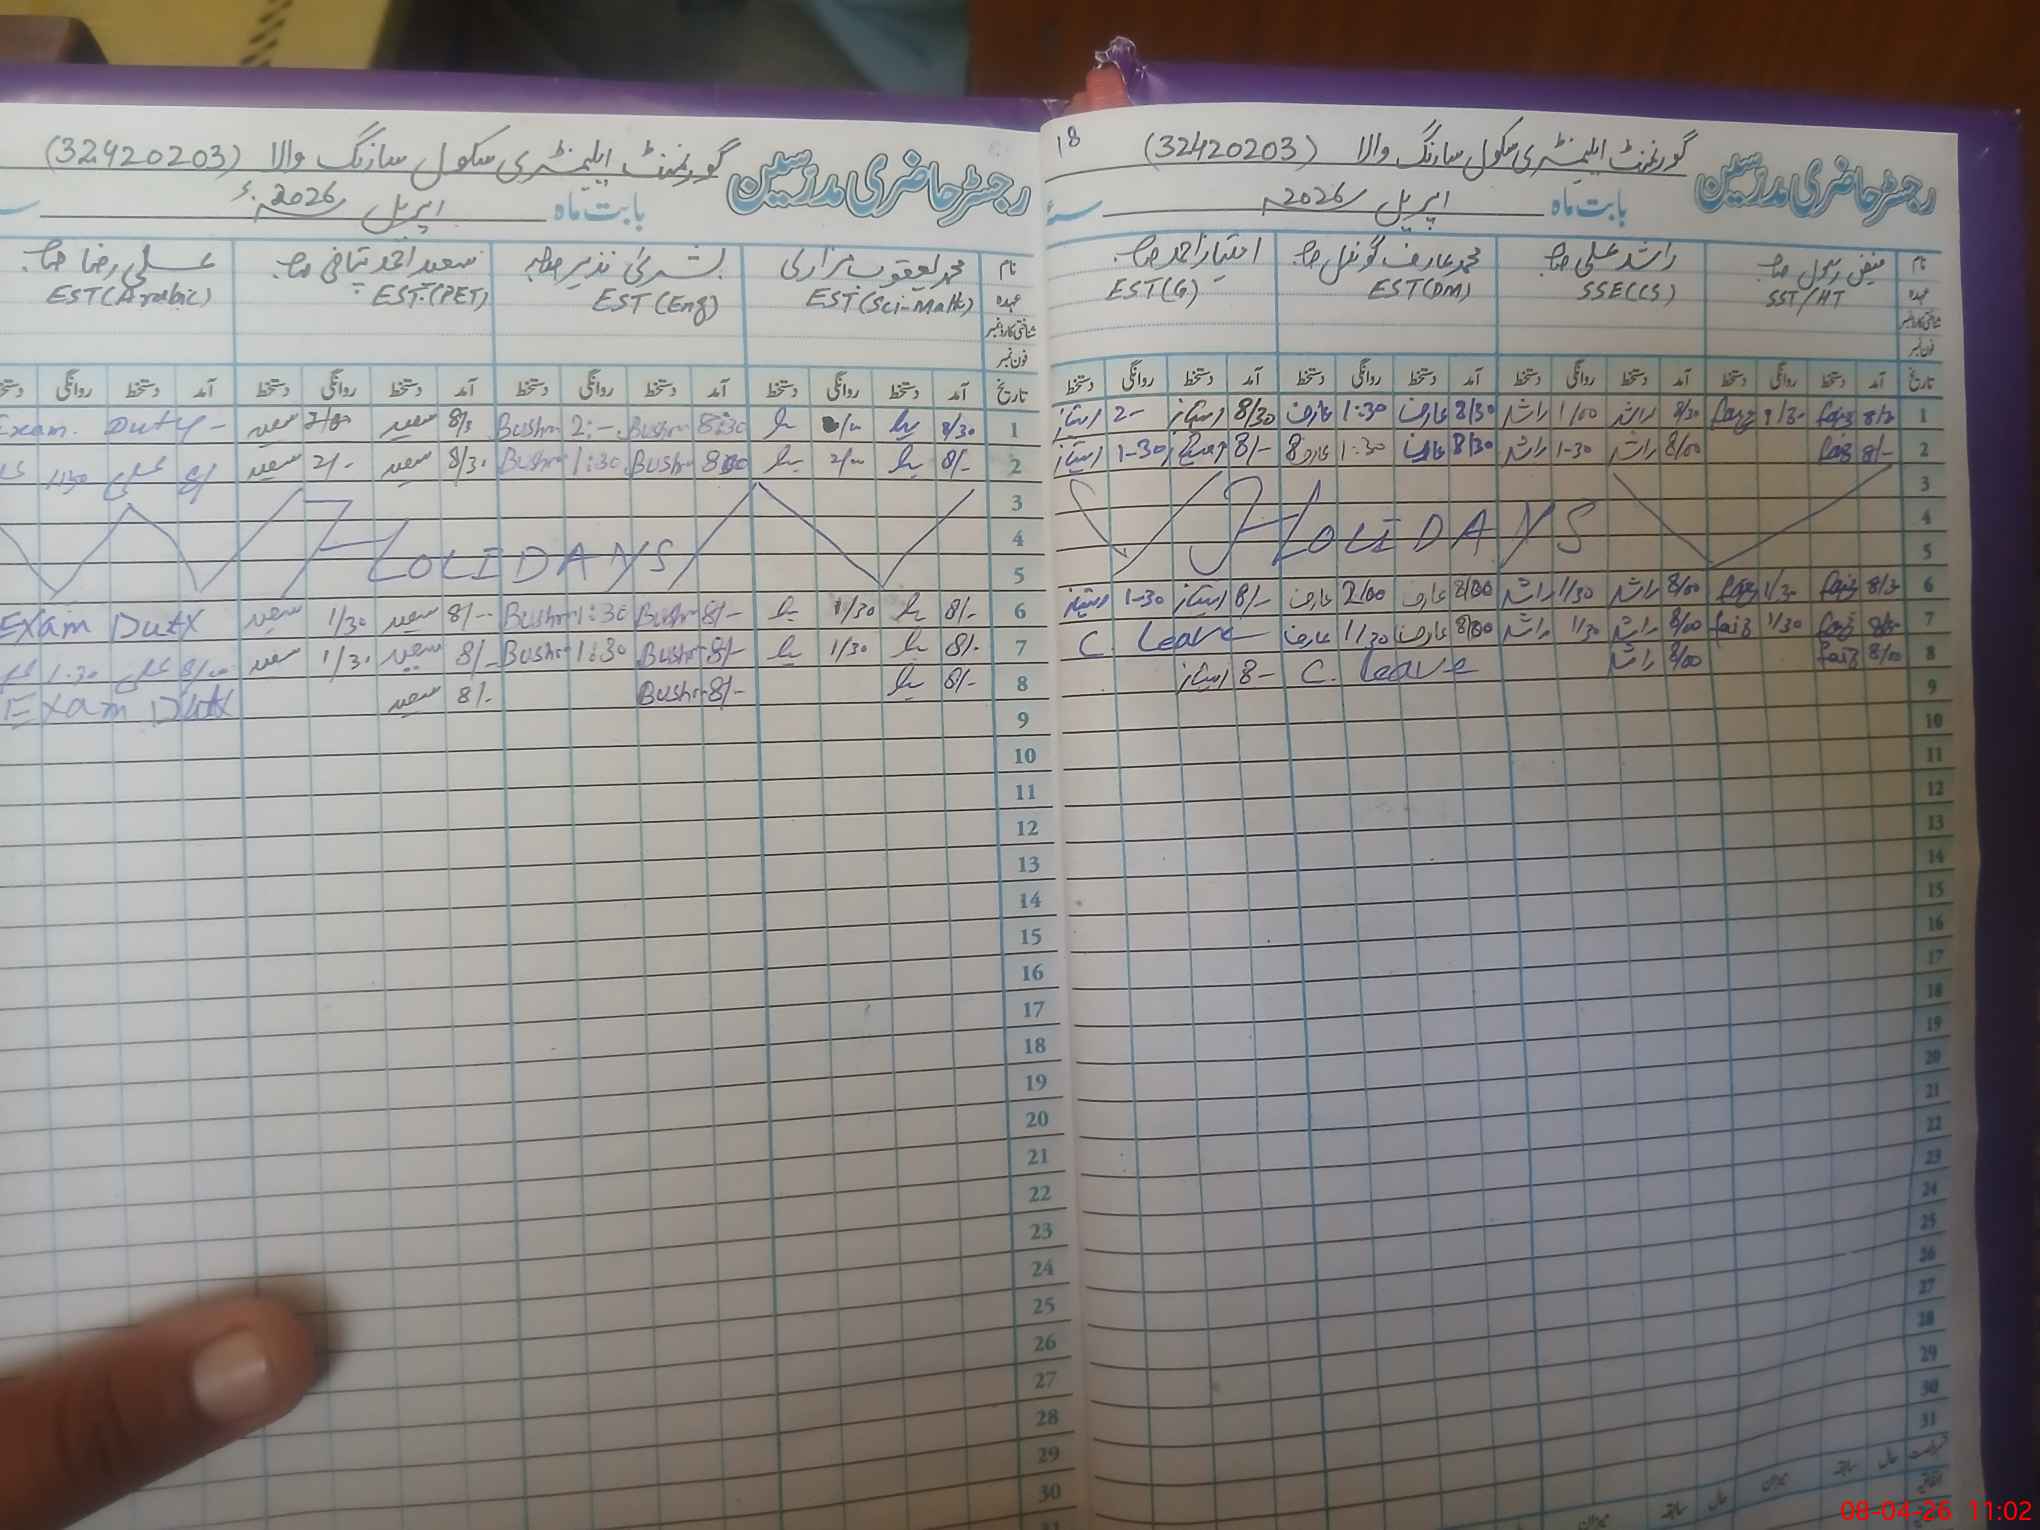 18
رجسٹر حاضری مدرسین گورنمنٹ ایلیمنٹری سکول سارنگ والا (32420203)
بابت ماہ اپریل 2026ء
نام فیض رسول صاحب راشد علی صاحب محمد عارف گوندل صاحب امتیاز احمد صاحب
عہدہ SST/HT SSE(CS) EST(DM) EST(G)
شناختی کارڈ نمبر
فون نمبر
تاریخ آمد دستخط روانگی دستخط آمد دستخط روانگی دستخط آمد دستخط روانگی دستخط آمد دستخط روانگی دستخط
1 faiz faiz 8/30 راشد 1/00 راشد 8/30 عارف 1:30 عارف 8/30 امتیاز 2- امتیاز
2 8/- faiz 8/00 راشد 1-30 راشد 8/30 عارف 1:30 عارف 8/- امتیاز 1-30 امتیاز
3
4 HOLIDAYS
5
6 8/3 faiz 1/30 faiz 8/00 راشد 1/30 راشد 8/00 عارف 2/00 عارف 8/- امتیاز 1-30 امتیاز
7 faiz 1/30 faiz 8/00 راشد 1/30 راشد 8/00 عارف 1/30 عارف C. Leave
8 8/00 faiz 8/00 راشد C. leave 8- امتیاز
9
10
11
12
13
14
15
16
17
18
19
20
21
22
23
24
25
26
27
28
29
30
31
رجسٹر حاضری مدرسین گورنمنٹ ایلیمنٹری سکول سارنگ والا (32420203)
بابت ماہ اپریل 2026ء
نام محمد یعقوب ہزاری بشریٰ نذیر صاحبہ سعید احمد صاحب علی رضا صاحب
عہدہ EST(Sci-Math) EST(Eng) EST(PET) EST(Arabic)
شناختی کارڈ نمبر
فون نمبر
تاریخ آمد دستخط روانگی دستخط آمد دستخط روانگی دستخط آمد دستخط روانگی دستخط آمد دستخط روانگی
1 8/30 8:30 Bushra 2:- Bushra 8/3 سعید 2/00 سعید Exam. Duty
2 8/- 2/00 8:00 Bushra 1:30 Bushra 8/30 سعید 2/- سعید علی 1:30
3
4 HOLIDAYS
5
6 8/- 1/30 8/- Bushra 1:30 Bushra 8/- سعید 1/30 سعید Exam Duty
7 8/- 1/30 8/- Bushra 1:30 Bushra 8/- سعید 1/30 سعید 8/00 علی 1:30
8 8/- 8/- Bushra 8/- سعید Exam Duty
9
10
11
12
13
14
15
16
17
18
19
20
21
22
23
24
25
26
27
28
29
30
08-04-26 11:02